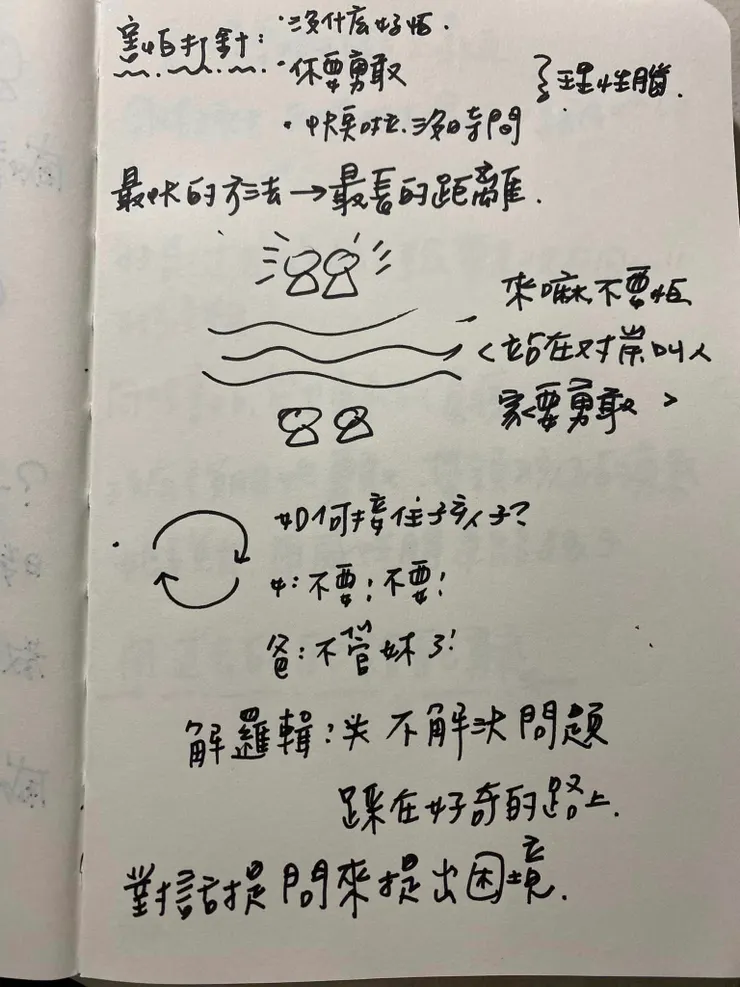 害怕打針：·沒什麼好怕．
·你要勇敢
理性腦．
·快哭吐．沒時間
最快的方法→最長的距離．
來嘛不要怕
＜站在对岸叫人
家要勇敢＞
如何接住孩子？
女：不要！不要！
爸：不管妹了！
解邏輯：先不解決問題
踩在好奇的路上．
對話提問來提出困境．